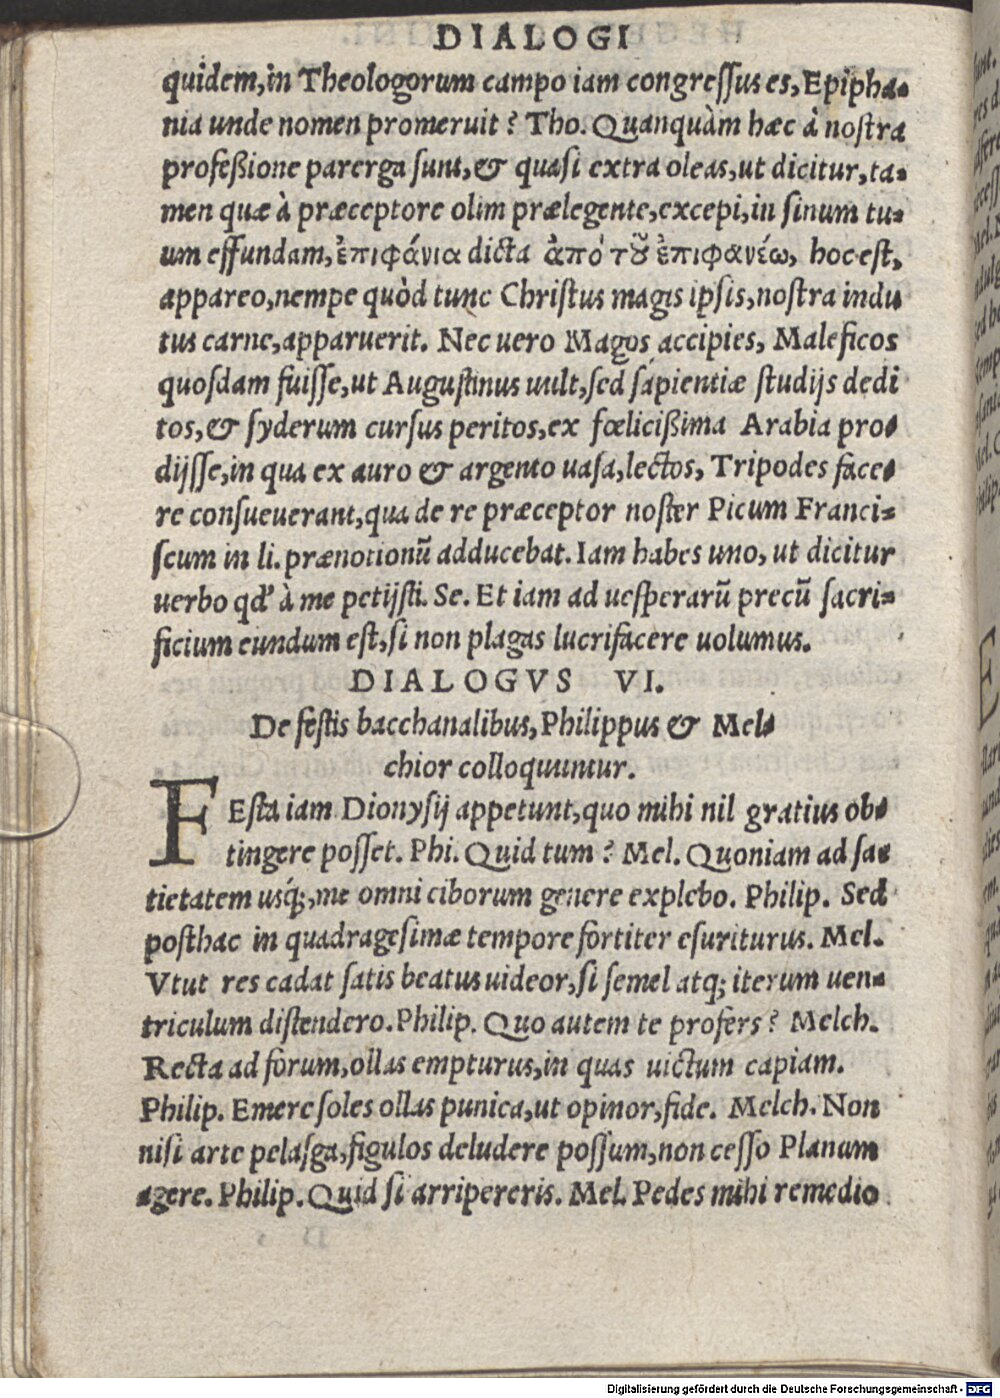 DIALOGI
quidem,in Theologorum campo iam congreſſus es, Epipha-
nia unde nomen promeruit? Tho. Quanquàm hæc à noſtra
profeßione parerga ſunt,& quaſi extra oleas,ut dicitur,ta-
men quæ à præceptore olim prælegente,excepi,in ſinum tu-
um effundam,ἐπιφάνια dicta ἀπὸ τοῦ ἐπιφανέω, hoc eſt,
appareo,nempe quòd tunc Chriſtus magis ipſis,noſtra indu
tus carne,apparuerit. Nec uero Magos accipies, Maleficos
quoſdam fuiſſe,ut Auguſtinus uult,ſed ſapientiæ ſtudijs dedi
tos,& ſyderum curſus peritos,ex fœlicißima Arabia pro-
dijſſe,in qua ex auro & argento uaſa,lectos, Tripodes face-
re conſueuerant,qua de re præceptor noſter Picum Franci-
ſcum in li. prænotionũ adducebat. Iam habes uno, ut dicitur
uerbo qd' à me petijſti. Se. Et iam ad ueſperarũ precũ ſacri-
ficium eundum eſt,ſi non plagas lucrifacere uolumus.
DIALOGVS VI.
De feſtis bacchanalibus, Philippus & Mel-
chior colloquuntur.
FEſta iam Dionyſij appetunt,quo mihi nil gratius ob-
tingere poſſet. Phi. Quid tum? Mel. Quoniam ad ſa-
tietatem uſq;,me omni ciborum genere explebo. Philip. Sed
poſthac in quadrageſimæ tempore fortiter eſuriturus. Mel.
Vtut res cadat ſatis beatus uideor,ſi ſemel atq; iterum uen-
triculum diſtendero. Philip. Quo autem te profers? Melch.
Recta ad forum,ollas empturus,in quas uictum capiam.
Philip. Emere ſoles ollas punica,ut opinor,fide. Melch. Non
niſi arte pelaſga,figulos deludere poſſum,non ceſſo Planum
agere. Philip. Quid ſi arripereris. Mel. Pedes mihi remedio
Digitalisierung gefördert durch die Deutsche Forschungsgemeinschaft - DFG